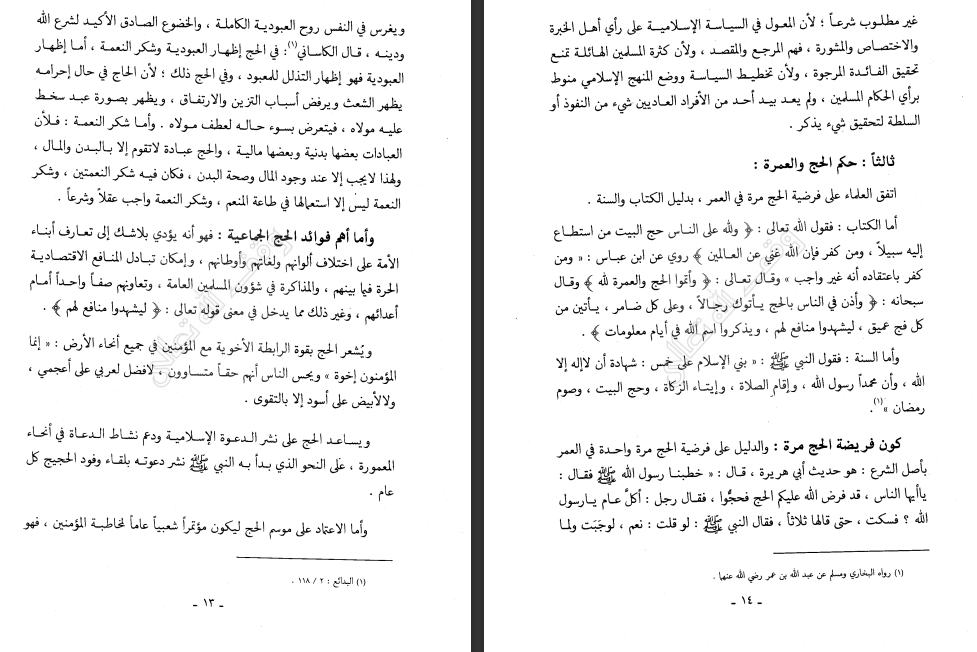 ويغرس في النفس روح العبودية الكاملة ، والخضوع الصادق الأكيد لشرع الله
ودينه ، قال الكاساني(١): في الحج إظهار العبودية وشكر النعمة ، أما إظهار
العبودية فهو إظهار التذلل للمعبود ، وفي الحج ذلك ؛ لأن الحاج في حال إحرامه
يظهر الشعث ويرفض أسباب التزين والارتفاق ، ويظهر بصورة عبد سخط
عليه مولاه ، فيتعرض بسوء حاله لعطف مولاه . وأما شكر النعمة : فلأن
العبادات بعضها بدنية وبعضها مالية ، والحج عبادة لاتقوم إلا بالبدن والمال ،
ولهذا لايجب إلا عند وجود المال وصحة البدن ، فكان فيه شكر النعمتين ، وشكر
النعمة ليس إلا استعمالها في طاعة المنعم ، وشكر النعمة واجب عقلاً وشرعاً .
وأما أهم فوائد الحج الجماعية : فهو أنه يؤدي بلاشك إلى تعارف أبناء
الأمة على اختلاف ألوانهم ولغاتهم وأوطانهم ، وإمكان تبادل المنافع الاقتصادية
الحرة فيا بينهم ، والمذاكرة في شؤون المسلمين العامة ، وتعاونهم صفاً واحداً أمام
أعدائهم ، وغير ذلك مما يدخل في معنى قوله تعالى : ﴿ ليشهدوا منافع لهم ﴾ .
ويُشعر الحج بقوة الرابطة الأخوية مع المؤمنين في جميع أنحاء الأرض : « إنما
المؤمنون إخوة » ويحس الناس أنهم حقاً متساوون ، لافضل لعربي على أعجمي ،
ولالأبيض على أسود إلا بالتقوى .
ويساعد الحج على نشر الدعوة الإسلامية ودعم نشاط الدعاة في أنحاء
المعمورة ، على النحو الذي بدأ به النبي ﷺ نشر دعوته بلقاء وفود الحجيج كل
عام .
وأما الاعتماد على موسم الحج ليكون مؤتمراً شعبياً عاماً لمخاطبة المؤمنين ، فهو
(١) البدائع : ٢ / ١١٨ .
ـ ١٣ ـ
غير مطلوب شرعاً ؛ لأن المعول في السياسة الإسلامية على رأي أهل الخبرة
والاختصاص والمشورة ، فهم المرجع والمقصد ، ولأن كثرة المسلمين الهائلة تمنع
تحقيق الفائدة المرجوة ، ولأن تخطيط السياسة ووضع المنهج الإسلامي منوط
برأي الحكام المسلمين ، ولم يعد بيد أحد من الأفراد العاديين شيء من النفوذ أو
السلطة لتحقيق شيء يذكر .
ثالثاً : حكم الحج والعمرة :
اتفق العلماء على فرضية الحج مرة في العمر ، بدليل الكتاب والسنة .
أما الكتاب : فقول الله تعالى : ﴿ ولله على الناس حج البيت من استطاع
إليه سبيلاً ، ومن كفر فإن الله غني عن العالمين ﴾ روي عن ابن عباس : « ومن
كفر باعتقاده أنه غير واجب » وقال تعالى : ﴿ وأتموا الحج والعمرة لله ﴾ وقال
سبحانه : ﴿ وأذن في الناس بالحج يأتوك رجالاً ، وعلى كل ضامر ، يأتين من
كل فج عميق ، ليشهدوا منافع لهم ، ويذكروا اسم الله في أيام معلومات ﴾ .
وأما السنة : فقول النبي ﷺ : « بني الإسلام على خمس : شهادة أن لاإله إلا
الله ، وأن محمداً رسول الله ، وإقام الصلاة ، وإيتاء الزكاة ، وحج البيت ، وصوم
رمضان »(١).
كون فريضة الحج مرة : والدليل على فرضية الحج مرة واحدة في العمر
بأصل الشرع : هو حديث أبي هريرة ، قال : « خطبنا رسول الله ﷺ فقال :
ياأيها الناس ، قد فرض الله عليكم الحج فحجُّوا ، فقال رجل : أكلَّ عام يارسول
الله ؟ فسكت ، حتى قالها ثلاثاً ، فقال النبي ﷺ : لو قلت : نعم ، لوجَبَت ولما
(١) رواه البخاري ومسلم عن عبد الله بن عمر رضي الله عنهما .
ـ ١٤ ـ